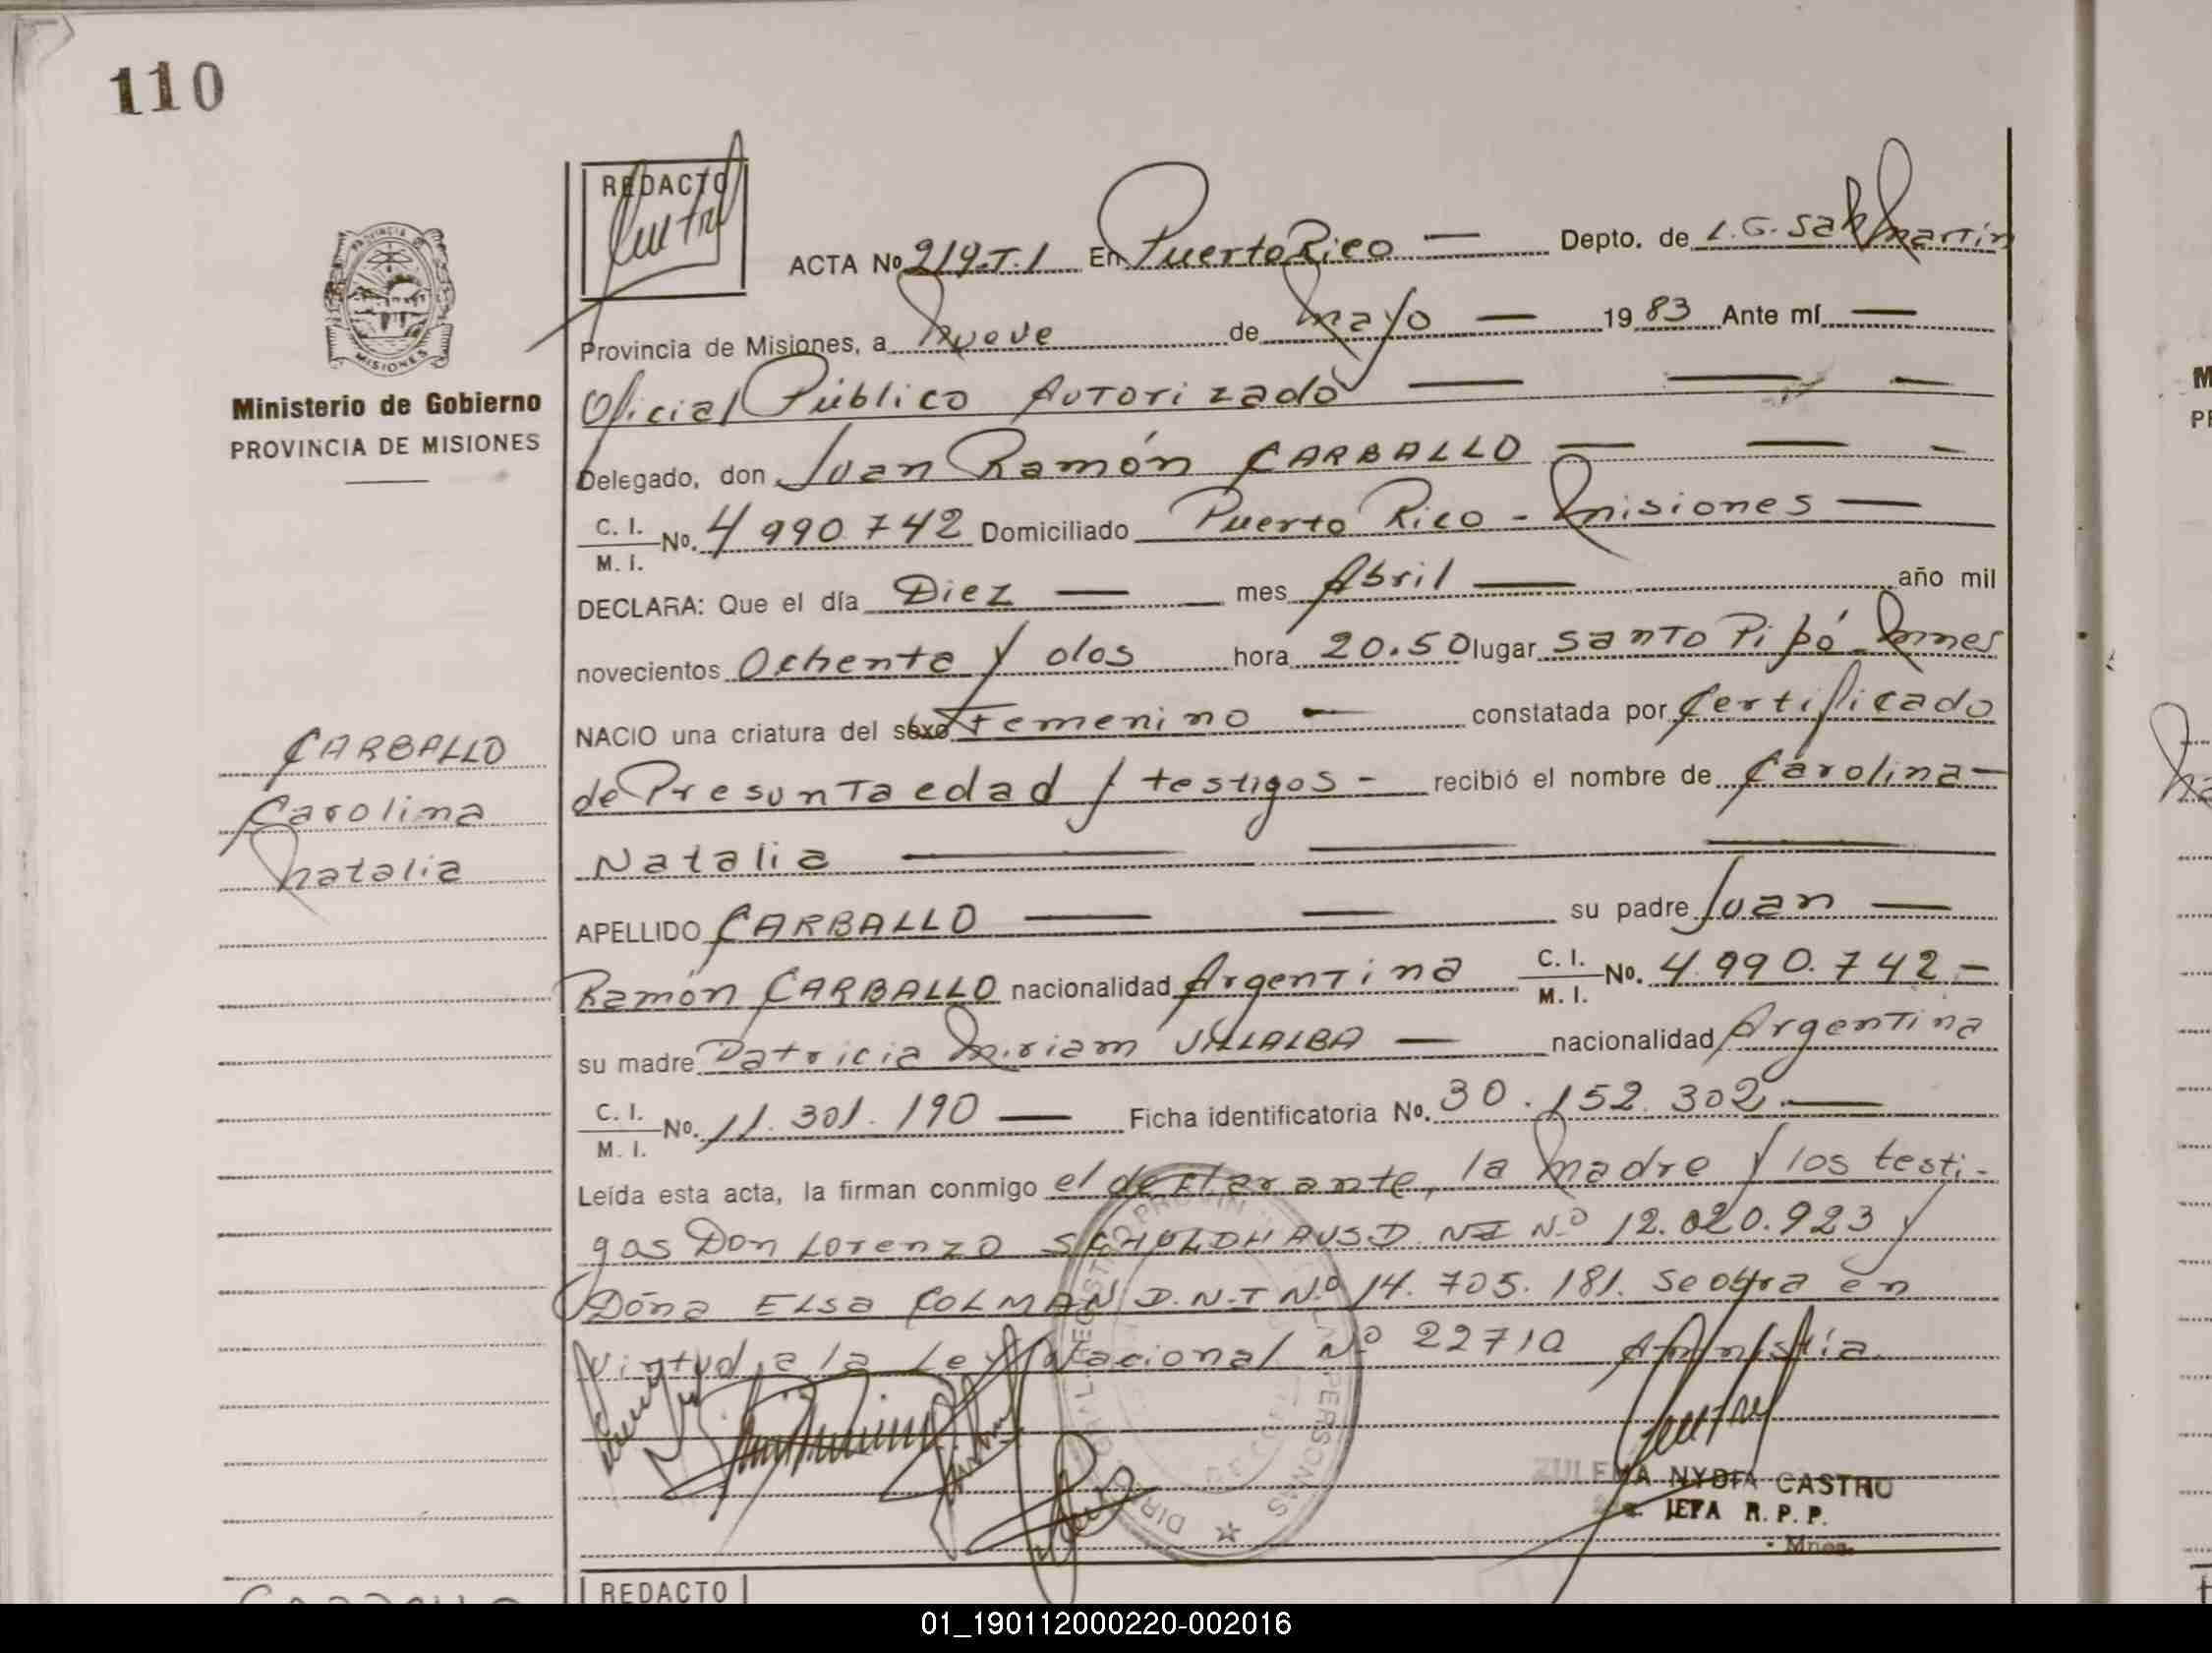 110
REDACTO
ACTA No 219.T.1 En Puerto Rico — Depto. de L.G. San Martín
PROVINCIA DE
MISIONES
Provincia de Misiones, a Nueve de Mayo — 1983 Ante mí —
Ministerio de Gobierno
PROVINCIA DE MISIONES
Oficial Público Autorizado — — —
Delegado, don Juan Ramón CARBALLO — — —
C. I.
M. I. No. 4 990.742 Domiciliado Puerto Rico - Misiones —
DECLARA: Que el día Diez — mes Abril — año mil
novecientos Ochenta y dos hora 20.50 lugar Santo Pipó - Mnes
NACIO una criatura del sexo Femenino — constatada por Certificado
de Presunta edad y testigos - recibió el nombre de Carolina —
Natalia — — —
CARBALLO
Carolina
Natalia
APELLIDO CARBALLO — — su padre Juan —
Ramón CARBALLO nacionalidad Argentina C. I.
M. I. No. 4.990.742 —
su madre Patricia Miriam VILLALBA — nacionalidad Argentina
C. I.
M. I. No. 11.301.190 — Ficha identificatoria No. 30.152.302 —
Leída esta acta, la firman conmigo el declarante, la madre y los testi-
gos Don Lorenzo SCHOLDHAUS D.NI Nº 12.020.923 y
Dóna ELSA COLMAN D.N.I Nº 14.705.181. Se obra en
virtud a la Ley Nacional Nº 22710 Amnistía.
ZULEMA NYDIA CASTRO
JEFA R. P. P.
Mnes.
REDACTO
01_190112000220-002016